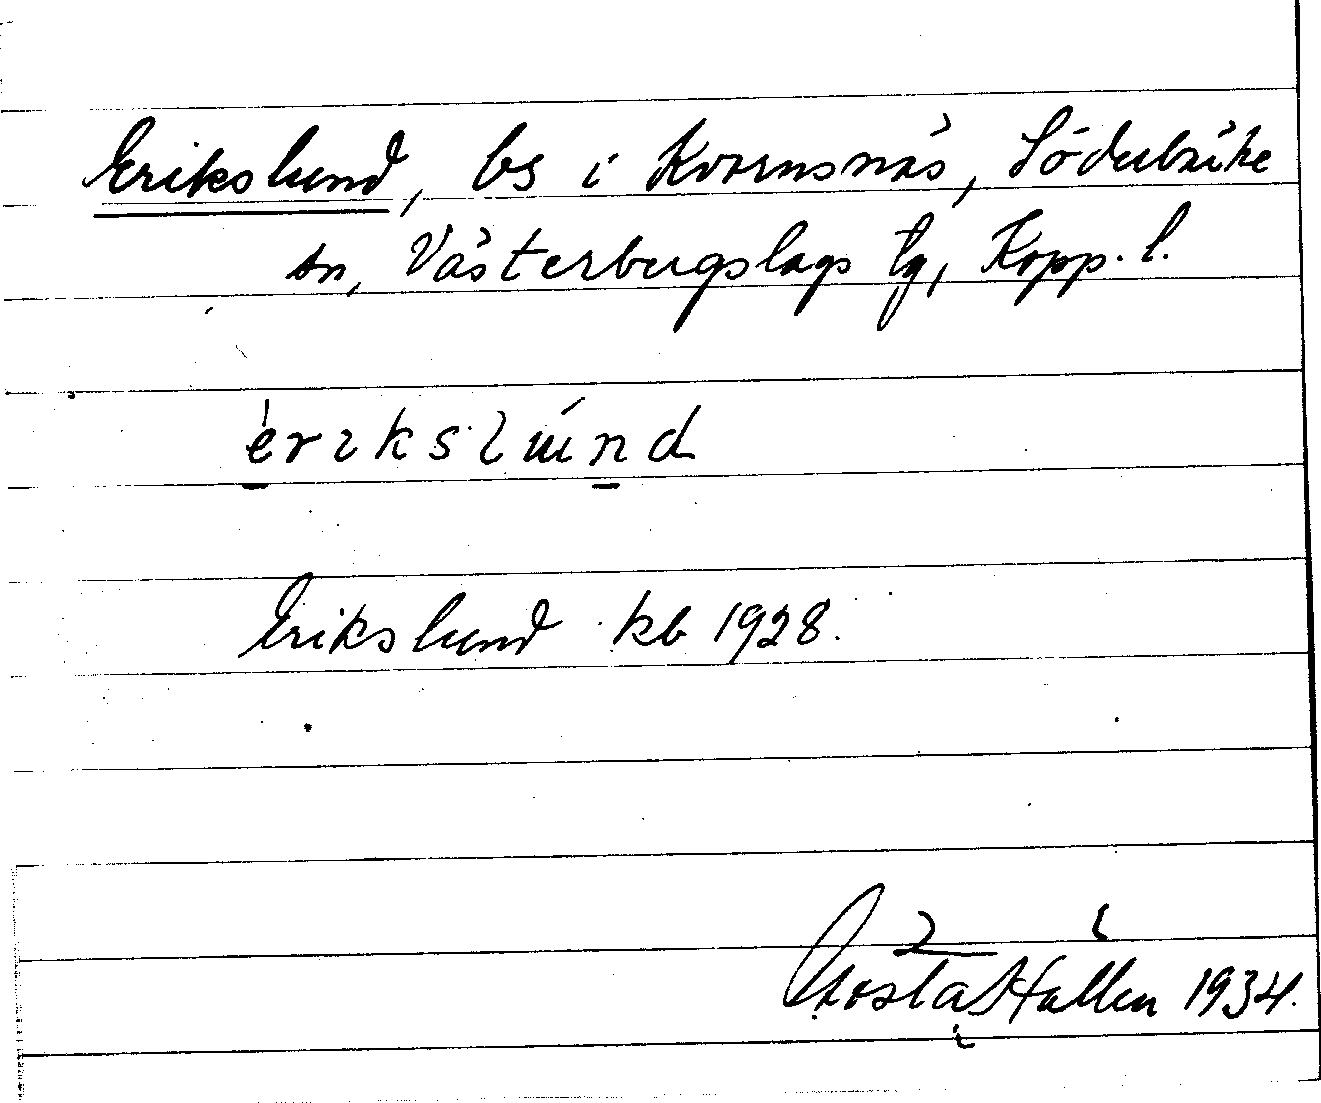 Erikslund, bs i Kvarnsnäs, Söderbärke
sn, Västerbergslags tg, Kopp. l.
erikslund
Erikslund kb 1928.
Gösta Hallén 1934.